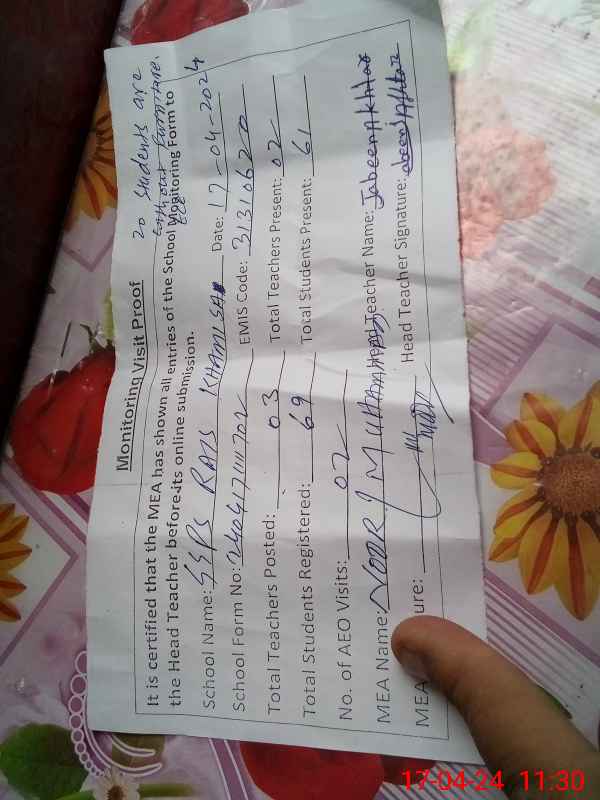 20 students are
without furniture.
ECE
Monitoring Visit Proof
It is certified that the MEA has shown all entries of the School Monitoring Form to
the Head Teacher before its online submission.
School Name: GGPS RAIS KHAMISA Date: 17-04-2024
School Form No: EMIS Code: 31310620
Total Teachers Posted: 03 Total Teachers Present: 02
Total Students Registered: 69 Total Students Present: 61
No. of AEO Visits: 02
MEA Name: NOOR MUHAMMAD Head Teacher Name: Jabeen Akhtar
MEA ure: Head Teacher Signature:
17-04-24 11:30